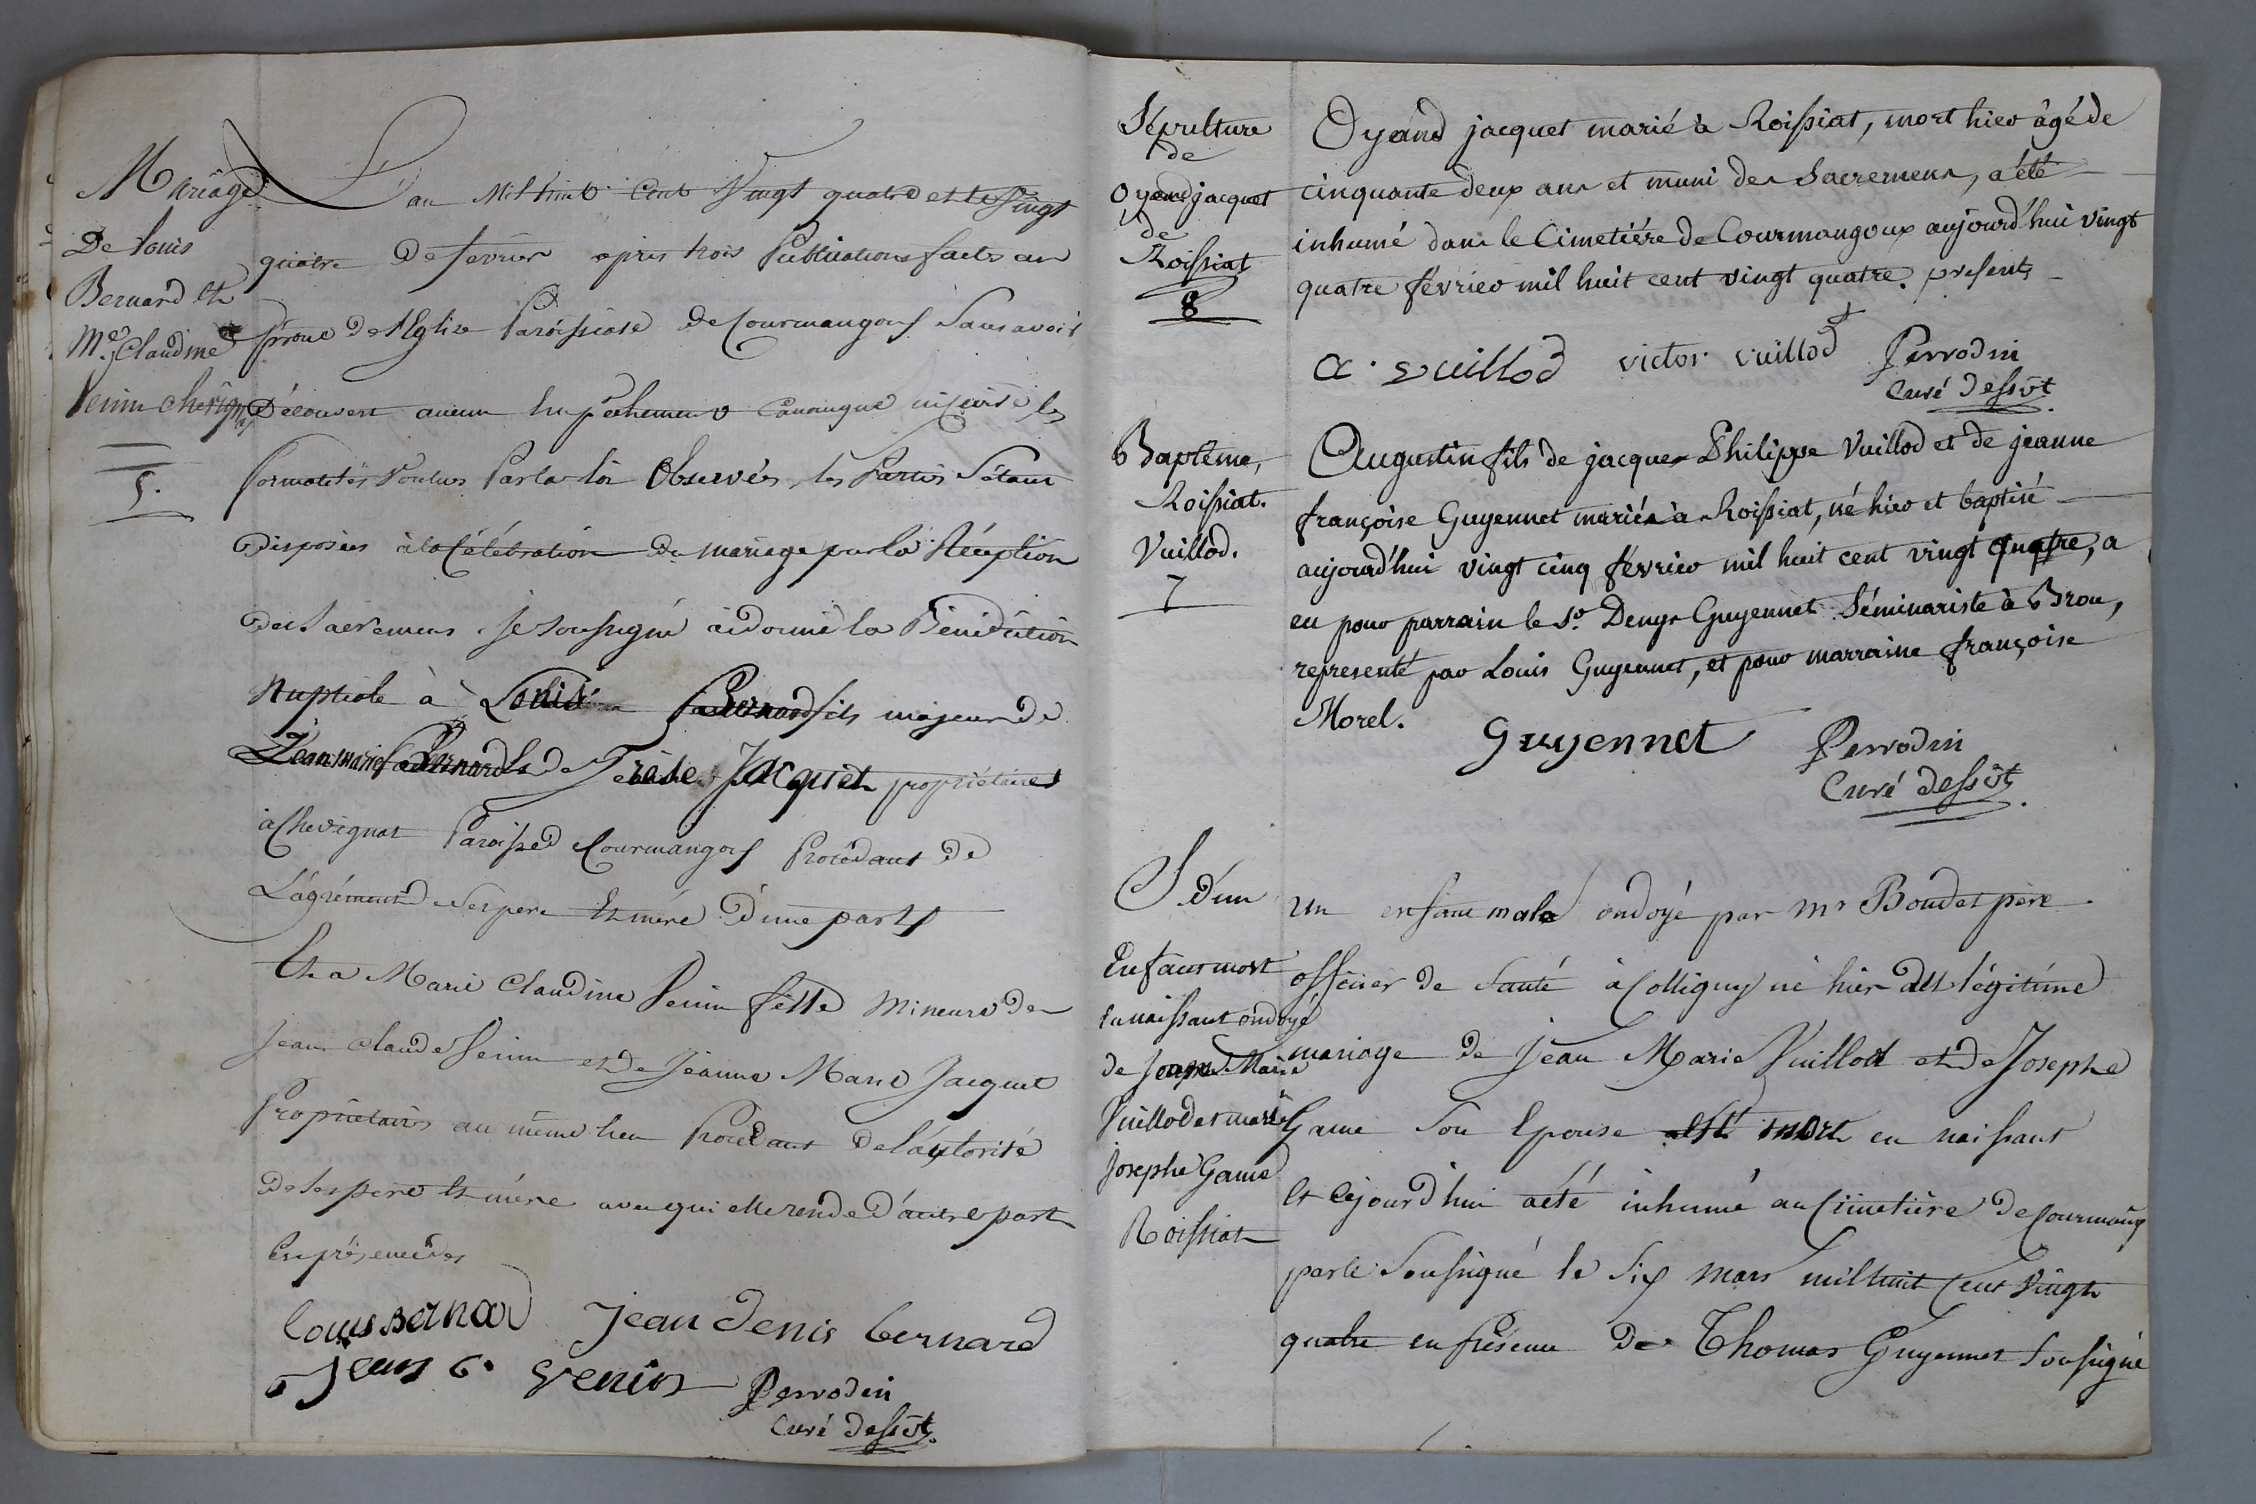 Mariage
De Louis
Bernard et
Mie Claudine
Venin chevignat
5.
L'an Mil huit Cent Vingt quatre et le Vingt
quatre De fevrier apres trois Publications faites au
prone De l'Eglise Paroissiale De Courmangoux Sans avoir
Découvert aucun Empêchement Canonique ni Civil les
formalités Voulues Par la loi Observées, les Parties S'étant
disposées à la Célébration du mariage par la Réception
des Sacremens, je soussigné ai donné la Bénédiction
Nuptiale à Louis Bernard fils majeur de
Jean marie Bernard et de Térèse Jacquet propriétaires
à Chevignat Paroisse de Courmangoux Procédant de
L'agrément de ses pere Et mère D'une part
Et a Marie Claudine Venin fille Mineure de
Jean Claude Venin et de Jeanne Marie Jacquet
Propriétaires au même lieu Procédant De l'autorité
De ses père et mère avec qui elle reside D'autre part
En présence des
louis Bernard Jean Denis bernard
jean c. venin Perrodin
Curé dessvt.
Sépulture
de
Oyand jacquet
de
Roissiat
8
Oyand jacquet marié à Roissiat, mort hier âgé de
cinquante deux ans et muni des Sacremens, a été
inhumé dans le Cimetière de Courmangoux aujourd'hui vingt
quatre février mil huit cent vingt quatre. presents
a. vuillod victor vuillod Perrodin
Curé dessvt.
Baptême,
Roissiat.
Vuillod.
7
Augustin fils de jacques Philippe Vuillod et de jeanne
françoise Guyennet mariés à Roissiat, né hier et baptisé
aujourd'hui vingt cinq février mil huit cent vingt quatre, a
eu pour parrain le Sr. Denys Guyennet Séminariste à Brou,
representé par Louis Guyennet, et pour marraine françoise
Morel.
Guyennet Perrodin
Curé dessvt.
S. d'un
Enfant mort
en naissant ondoyé
de Jean Marie
Vuillod et marie
Josephe Game
Roissiat
un enfant male ondoyé par mr Boudet père
officier de Santé à Colligny né hier du légitime
mariage de Jean Marie Vuillod et de Josephe
Game Son Epouse est mort en naissant
Et cejourd'hui a été inhumé au Cimetière de Courmang
par le Soussigné le Six Mars mil huit Cent Vingt
quatre en présence De Thomas Guyennet Soussigné